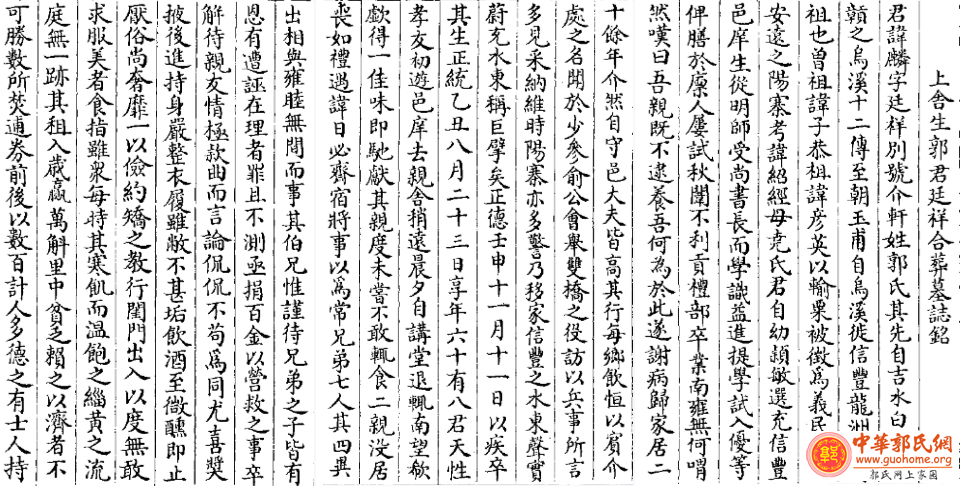 上舍生郭君廷祥合葬墓誌銘
君諱麟字廷祥別號介軒姓郭氏其先自吉水白
竷之烏溪十二傳至朝玉甫自烏溪徙信豐龍洲
祖也曾祖諱子恭祖諱彦英以輸粟被徵爲義民
安遠之陽寨考諱紹經母尭氏君自幼頴敏選充信豐
邑庠生從明師受尚書長而學識益進提學試入優等
俾膳於廪人屢試秋闈不利貢禮部卒業南雍無何喟
然嘆曰吾親既不逮養吾何為於此遂謝病歸家居二
十餘年介然自守邑大夫皆高其行每鄉飲恒以賔介
處之名聞於少參俞公會舉雙橋之役訪以兵事所言
多見采納維時陽寨亦多警乃移家信豐之水東聲實
蔚充水東稱巨擘矣正德壬申十一月十一日以疾卒
其生正統乙丑八月二十三日享年六十有八君天性
孝友初遊邑庠去親舍稍遠晨夕自講堂退輒南望欷
歔得一佳味即馳獻其親度未嘗不敢輒食二親没居
喪如禮遇諱日必齋宿將事以爲常兄弟七人其四異
出相與雍睦無間而事其伯兄惟謹待兄弟之子皆有
恩有遭誣在理者罪且不測亟捐百金以營救之事卒
解待親友情極款曲而言論侃侃不苟為同尤喜奬
掖後進持身嚴整衣履雖敝不甚垢飲酒至微醺即止
厭俗尚奢靡一以儉約矯之教行閨門出入以度無敢
求服美者食指雖衆每時其寒飢而溫飽之緇黄之流
庭無一跡其租入歲贏萬斛里中貧乏賴之以濟者不
可勝數所焚逋券前後以數百計人多德之有士人持
中華郭氏網
www.guohome.org
郭氏网上家園